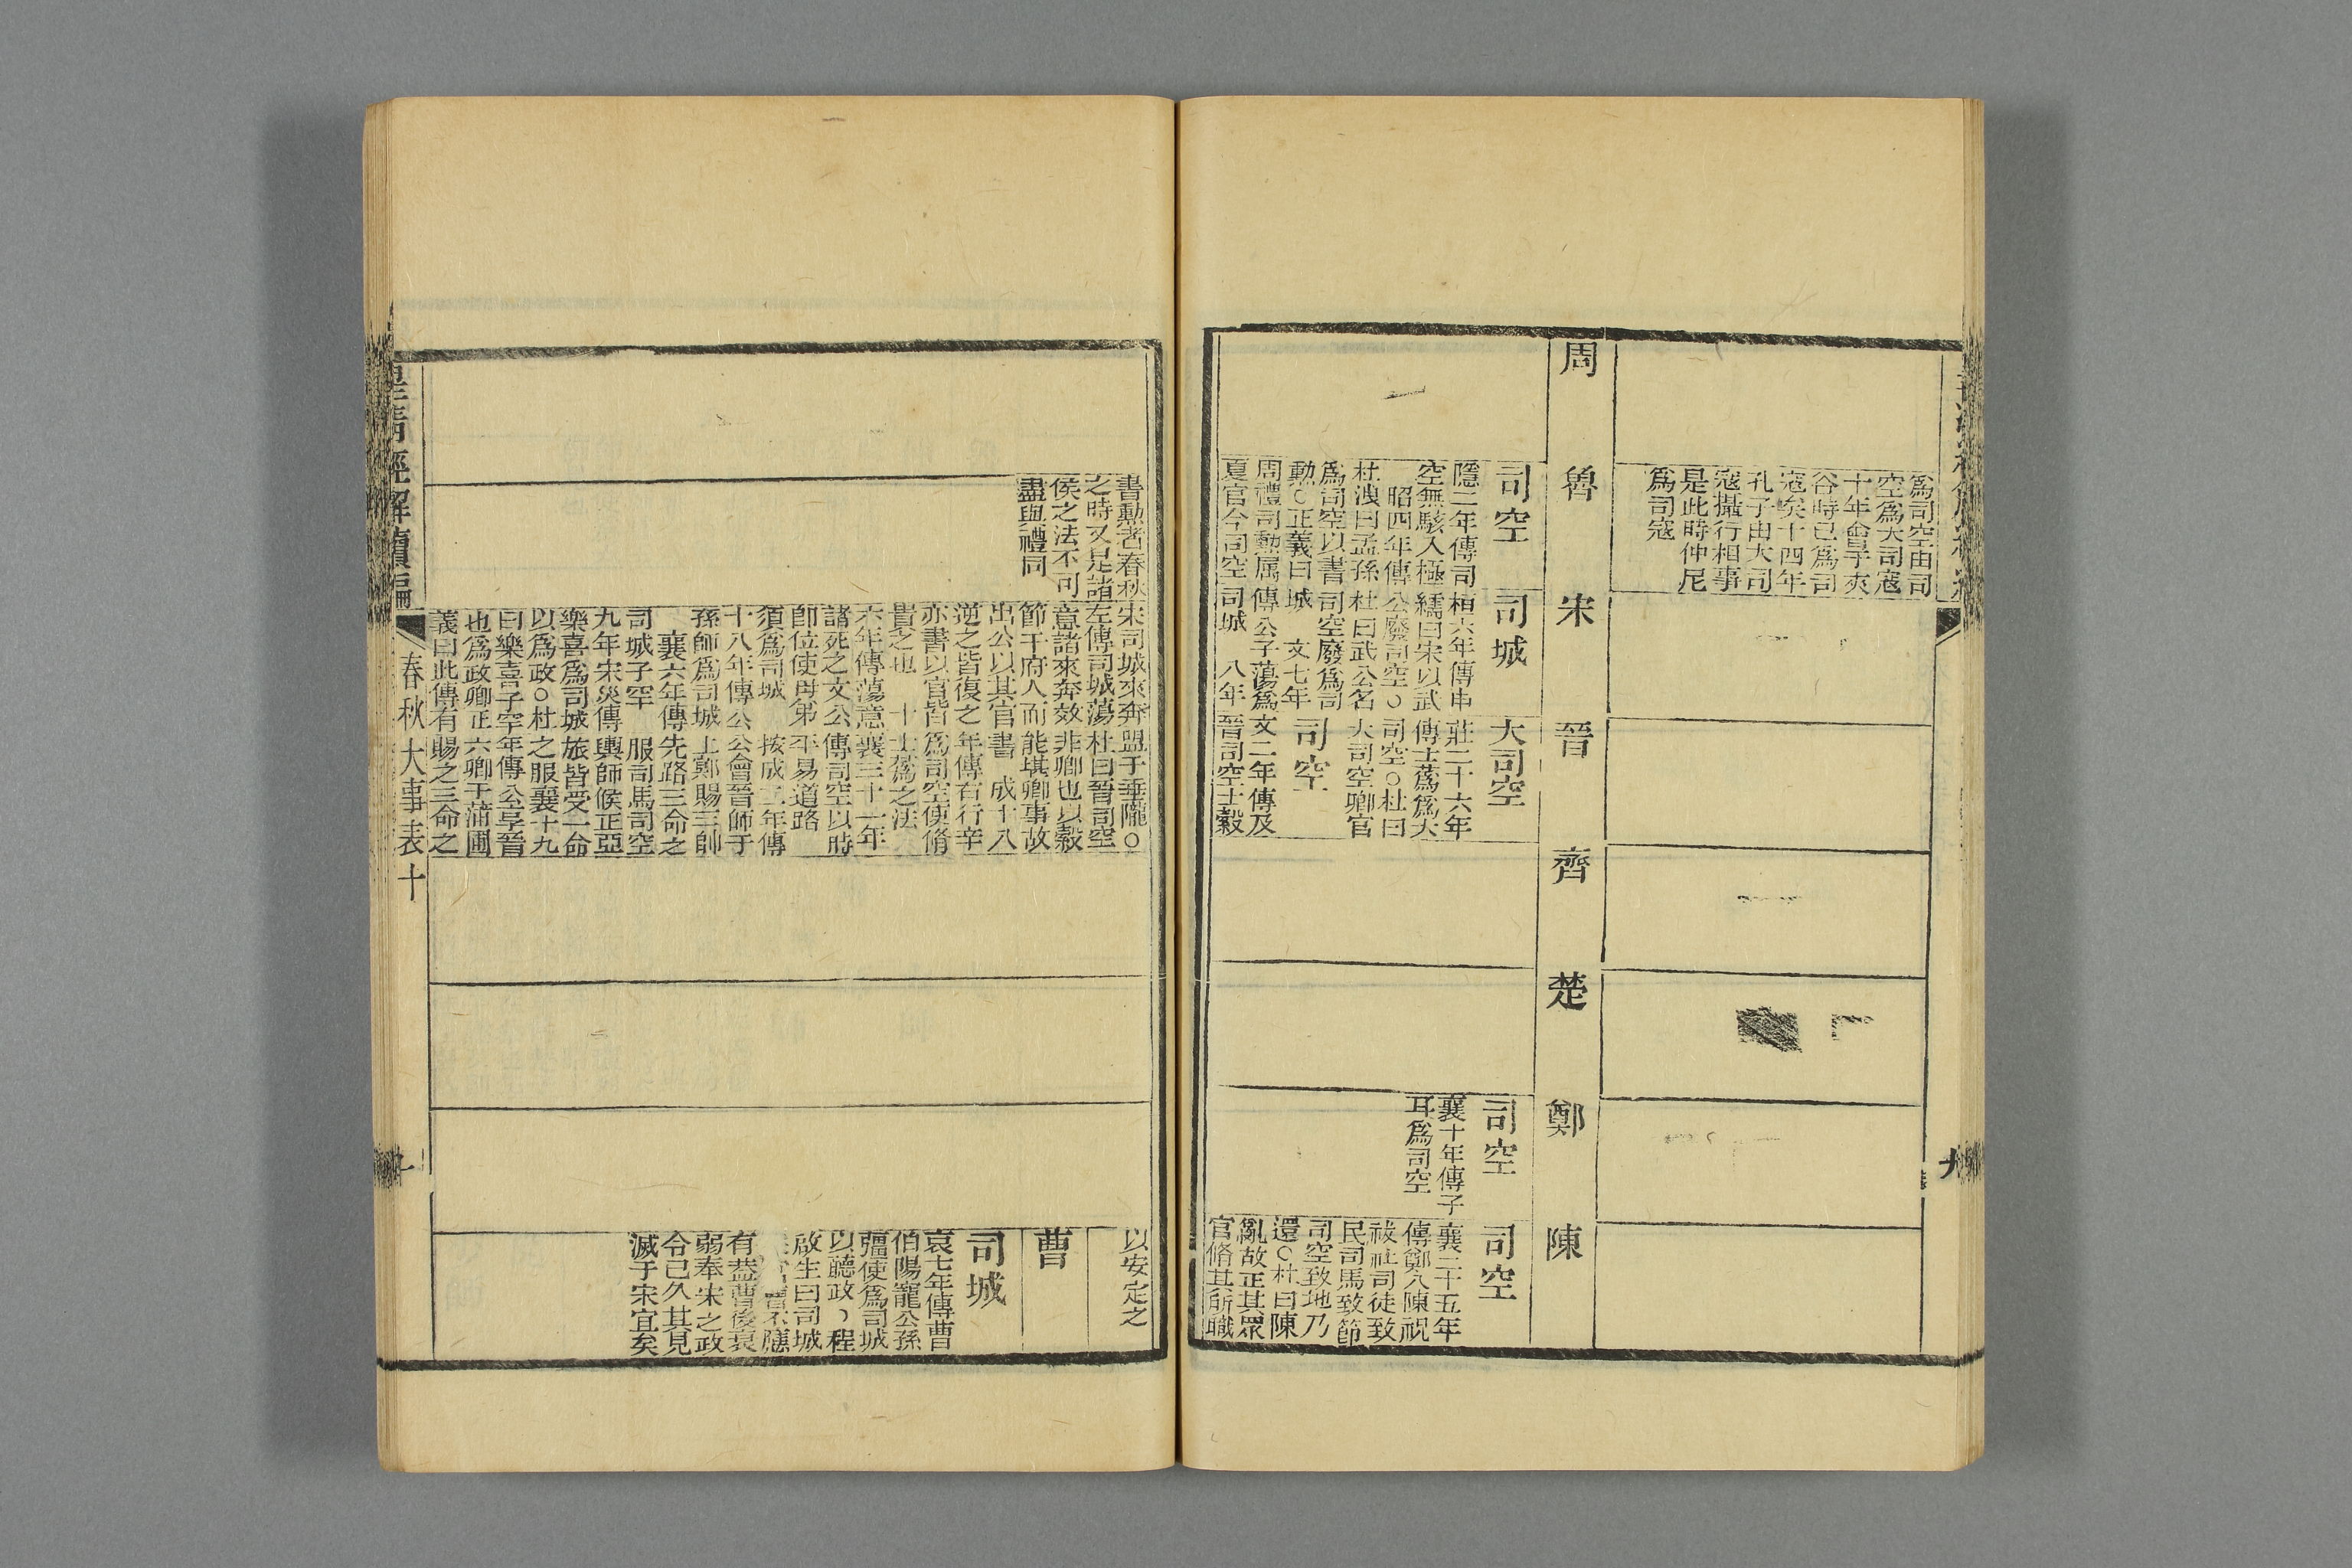 爲司空由司
空爲大司寇
十年會于夾
谷時已爲司
寇矣十四年
孔子由大司
寇攝行相事
是此時仲尼
爲司寇
周 魯 宋 晉 齊 楚 鄭 陳
司空
隱二年傳司
空無駭入極
昭四年傳
杜洩曰孟孫
爲司空以書
勳○正義曰
周禮司勳屬
夏官今司空
司城
桓六年傳申
繻曰宋以武
公廢司空○
杜曰武公名
司空廢爲司
城 文七年
傳公子蕩爲
司城 八年
大司空
莊二十六年
傳士蒍爲大
司空○杜曰
大司空卿官
司空
文二年傳及
晉司空士縠
司空
襄十年傳子
耳爲司空
司空
襄二十五年
傳鄭入陳祝
祓社司徒致
民司馬致節
司空致地乃
還○杜曰陳
亂故正其眾
官脩其所職
九
書勳者春秋
之時又是諸
侯之法不可
盡與禮同
宋司城來奔
左傳司城蕩
意諸來奔效
節于府人而
出公以其官
逆之皆復之
亦書以官皆
貴之也 十
六年傳蕩意
諸死之文公
卽位使母弟
須爲司城
十八年傳公
孫師爲司城
襄六年傳
司城子罕
九年宋災傳
樂喜爲司城
以爲政○杜
曰樂喜子罕
也爲政卿正
義曰此傳有
盟于垂隴○
杜曰晉司空
非卿也以縠
能堪卿事故
書 成十八
年傳右行辛
爲司空使脩
士蒍之法
襄三十一年
傳司空以時
平易道路
按成二年傳
公會晉師于
上鄍賜三帥
先路三命之
服司馬司空
輿師候正亞
旅皆受一命
之服襄十九
年傳公享晉
六卿于蒲圃
賜之三命之
以安定之
曹
司城
哀七年傳曹
伯陽寵公孫
彊使爲司城
以聽政○程
啟生曰司城
官曹不應
有葢曹後衰
弱奉宋之政
令已久其見
滅于宋宜矣
皇清經解續編
春秋大事表十